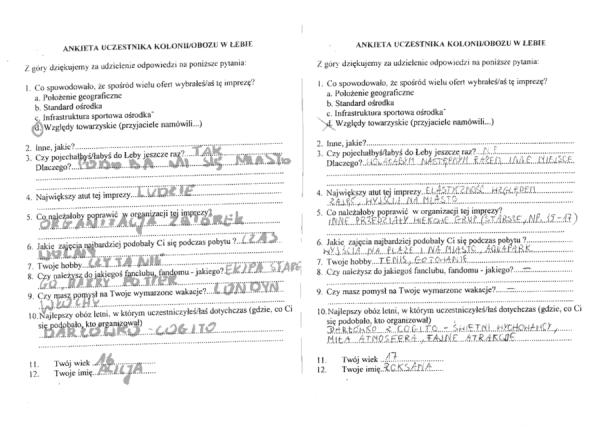 ANKIETA UCZESTNIKA KOLONII/OBOZU W ŁEBIE
Z góry dziękujemy za udzielenie odpowiedzi na poniższe pytania:
1. Co spowodowało, że spośród wielu ofert wybrałeś/aś tę imprezę?
a. Położenie geograficzne
b. Standard ośrodka
c. Infrastruktura sportowa ośrodka
d. Względy towarzyskie (przyjaciele namówili...)
2. Inne, jakie?
3. Czy pojechałbyś/łabyś do Łeby jeszcze raz? TAK
Dlaczego? PODOBA MI SIĘ MIASTO
4. Największy atut tej imprezy LUDZIE
5. Co należałoby poprawić w organizacji tej imprezy?
ORGANIZACJA ZBIÓREK
6. Jakie zajęcia najbardziej podobały Ci się podczas pobytu? CZAS
WOLNY
7. Twoje hobby CZYTANIE
8. Czy należysz do jakiegoś fanclubu, fandomu - jakiego? EKIPA
GO, HARRY POTTER
9. Czy masz pomysł na Twoje wymarzone wakacje? LONDYN
WŁOCHY
10. Najlepszy obóz letni, w którym uczestniczyłeś/łaś dotychczas (gdzie, co Ci
się podobało, kto organizował)
DARŁÓWKO - COGITO
11. Twój wiek 16
12. Twoje imię ALICJA
ANKIETA UCZESTNIKA KOLONII/OBOZU W ŁEBIE
Z góry dziękujemy za udzielenie odpowiedzi na poniższe pytania:
1. Co spowodowało, że spośród wielu ofert wybrałeś/aś tę imprezę?
a. Położenie geograficzne
b. Standard ośrodka
c. Infrastruktura sportowa ośrodka
d. Względy towarzyskie (przyjaciele namówili...)
2. Inne, jakie?
3. Czy pojechałbyś/łabyś do Łeby jeszcze raz?
Dlaczego? WOLAŁABYM NASTĘPNYM RAZEM INNE MIEJSCE
4. Największy atut tej imprezy ELASTYCZNOŚĆ WZGLĘDEM
ZAJĘĆ, WYJŚCIA NA MIASTO
5. Co należałoby poprawić w organizacji tej imprezy?
INNE PRZEDZIAŁY WIEKOWE GRUP (STARSZE, NP. 15-17)
6. Jakie zajęcia najbardziej podobały Ci się podczas pobytu?
WYJŚCIA NA PLAŻE I NA MIASTO, AQUAPARK
7. Twoje hobby TENIS, GOTOWANIE
8. Czy należysz do jakiegoś fanclubu, fandomu - jakiego? —
9. Czy masz pomysł na Twoje wymarzone wakacje? —
10. Najlepszy obóz letni, w którym uczestniczyłeś/łaś dotychczas (gdzie, co Ci
się podobało, kto organizował)
DARŁÓWKO Z COGITO - ŚWIETNI WYCHOWAWCY,
MIŁA ATMOSFERA, FAJNE ATRAKCJE
11. Twój wiek 17
12. Twoje imię ROKSANA